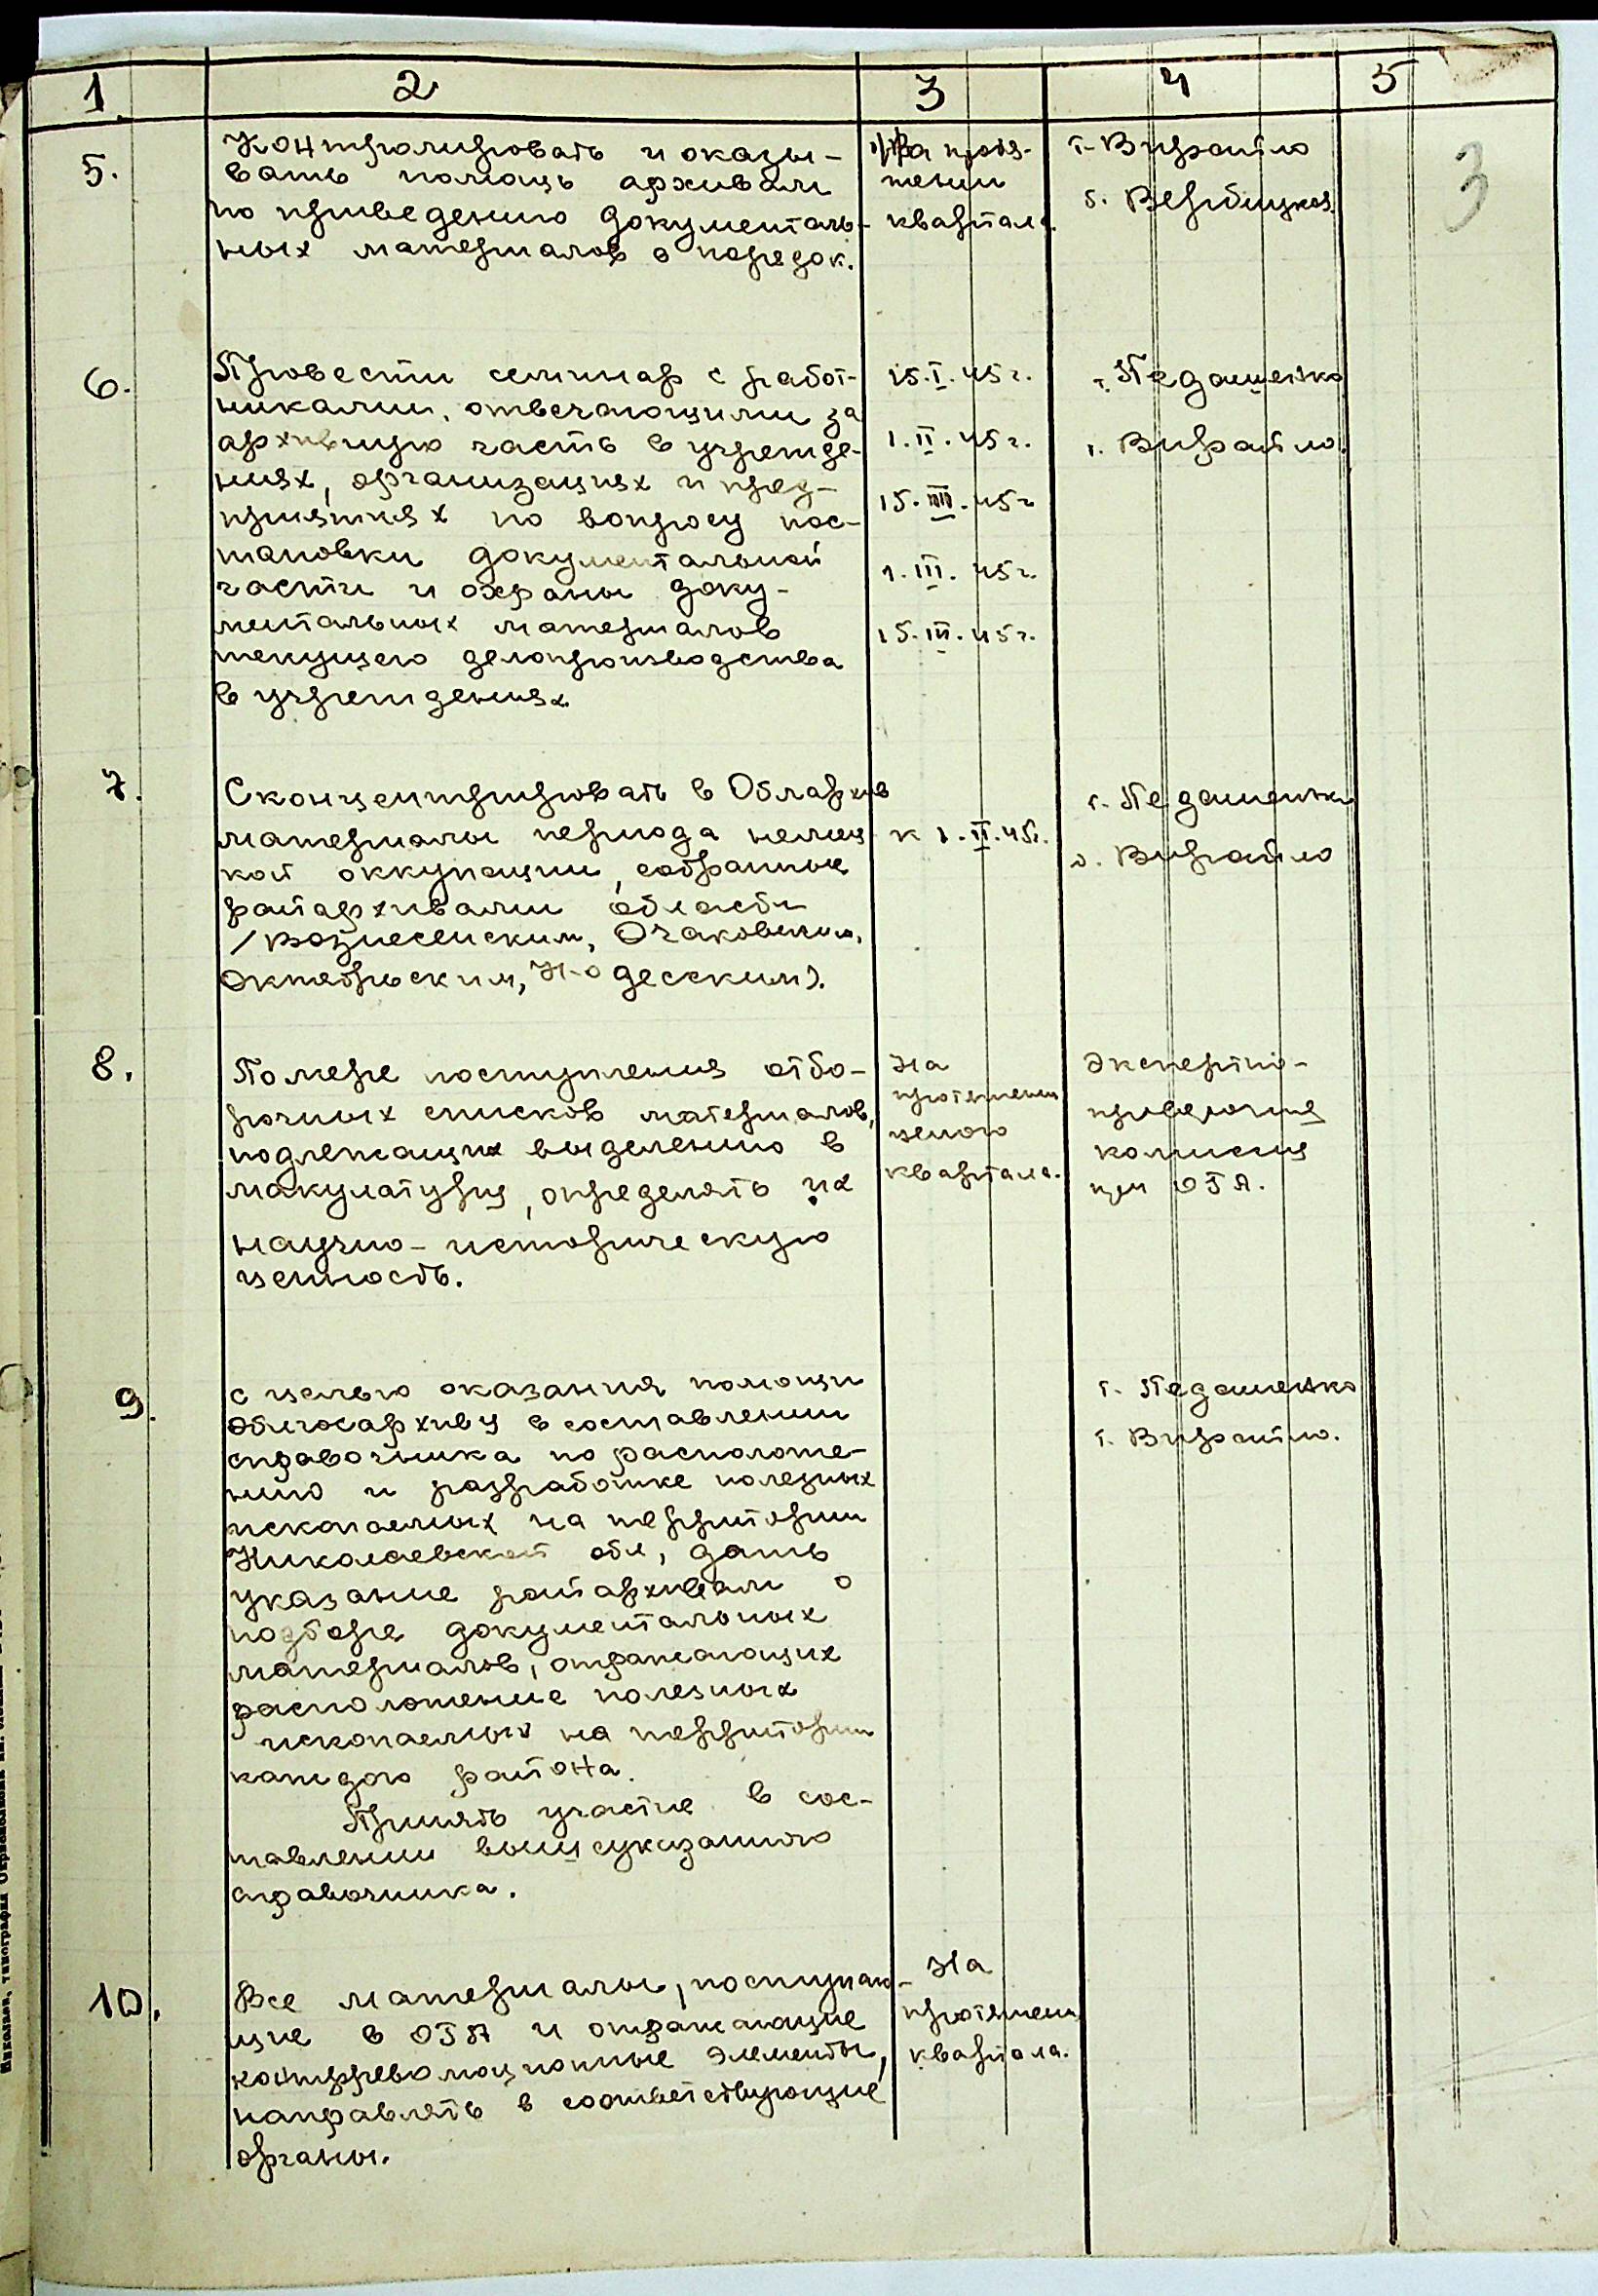 1. 2 3 4 5
3
5.
Контролировать и оказы-
вать помощь архивам
по приведению документаль-
ных материалов в порядок.
На протя-
жении
квартала.
т. Вирайло
т. Вербицкая
6.
Провести семинар с работ-
никами, отвечающими за
архивную часть в учрежде-
ниях, организациях и пред-
приятиях по вопросу пос-
тановки документальной
части и охраны доку-
ментальных материалов
текущего делопроизводства
в учреждениях
15.I.45г.
1.II.45г.
15.III.45г
1.III.45г.
15.III.45г.
т. Педашенко
т. Вирайло.
7.
Сконцентрировать в Облархив
материалы периода немец-
кой оккупации, собранные
райархивами области
/Вознесенским, Очаковским,
Октябрьским, Н-Одесским).
к 1.II.45г.
т. Педашенко
т. Вирайло
8.
По мере поступления отбо-
рочных списков материалов,
подлежащих выделению в
макулатуру, определять их
научно-историческую
ценность.
На
протяжении
целого
квартала.
Экспертно-
проверочная
комиссия
при ОГА.
9.
С целью оказания помощи
Облгосархиву в составлении
справочника по расположе-
нию и разработке полезных
ископаемых на территории
Николаевской обл, дать
указание райархивам о
подборе документальных
материалов, отражающих
расположение полезных
ископаемых на территории
каждого района.
Принять участие в сос-
тавлении вышеуказанного
справочника.
т. Педашенко
т. Вирайло.
10.
Все материалы, поступаю-
щие в ОГА и отражающие
контрреволюционные элементы,
направлять в соответствующие
органы.
На
протяжен.
квартала.